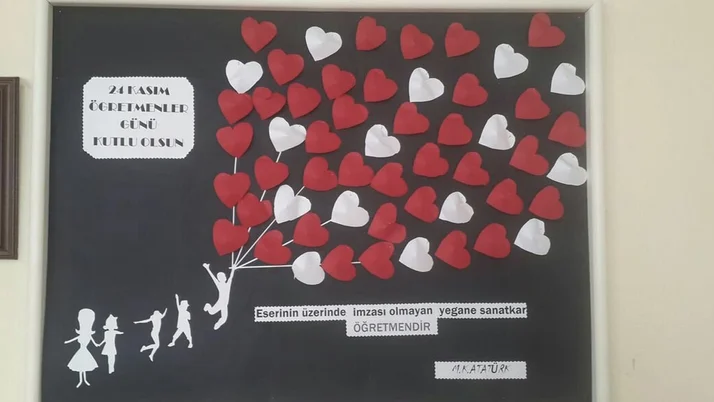 24 KASIM
ÖĞRETMENLER
GÜNÜ
KUTLU OLSUN
Eserinin üzerinde imzası olmayan yegane sanatkar
ÖĞRETMENDİR
M.K.ATATÜRK